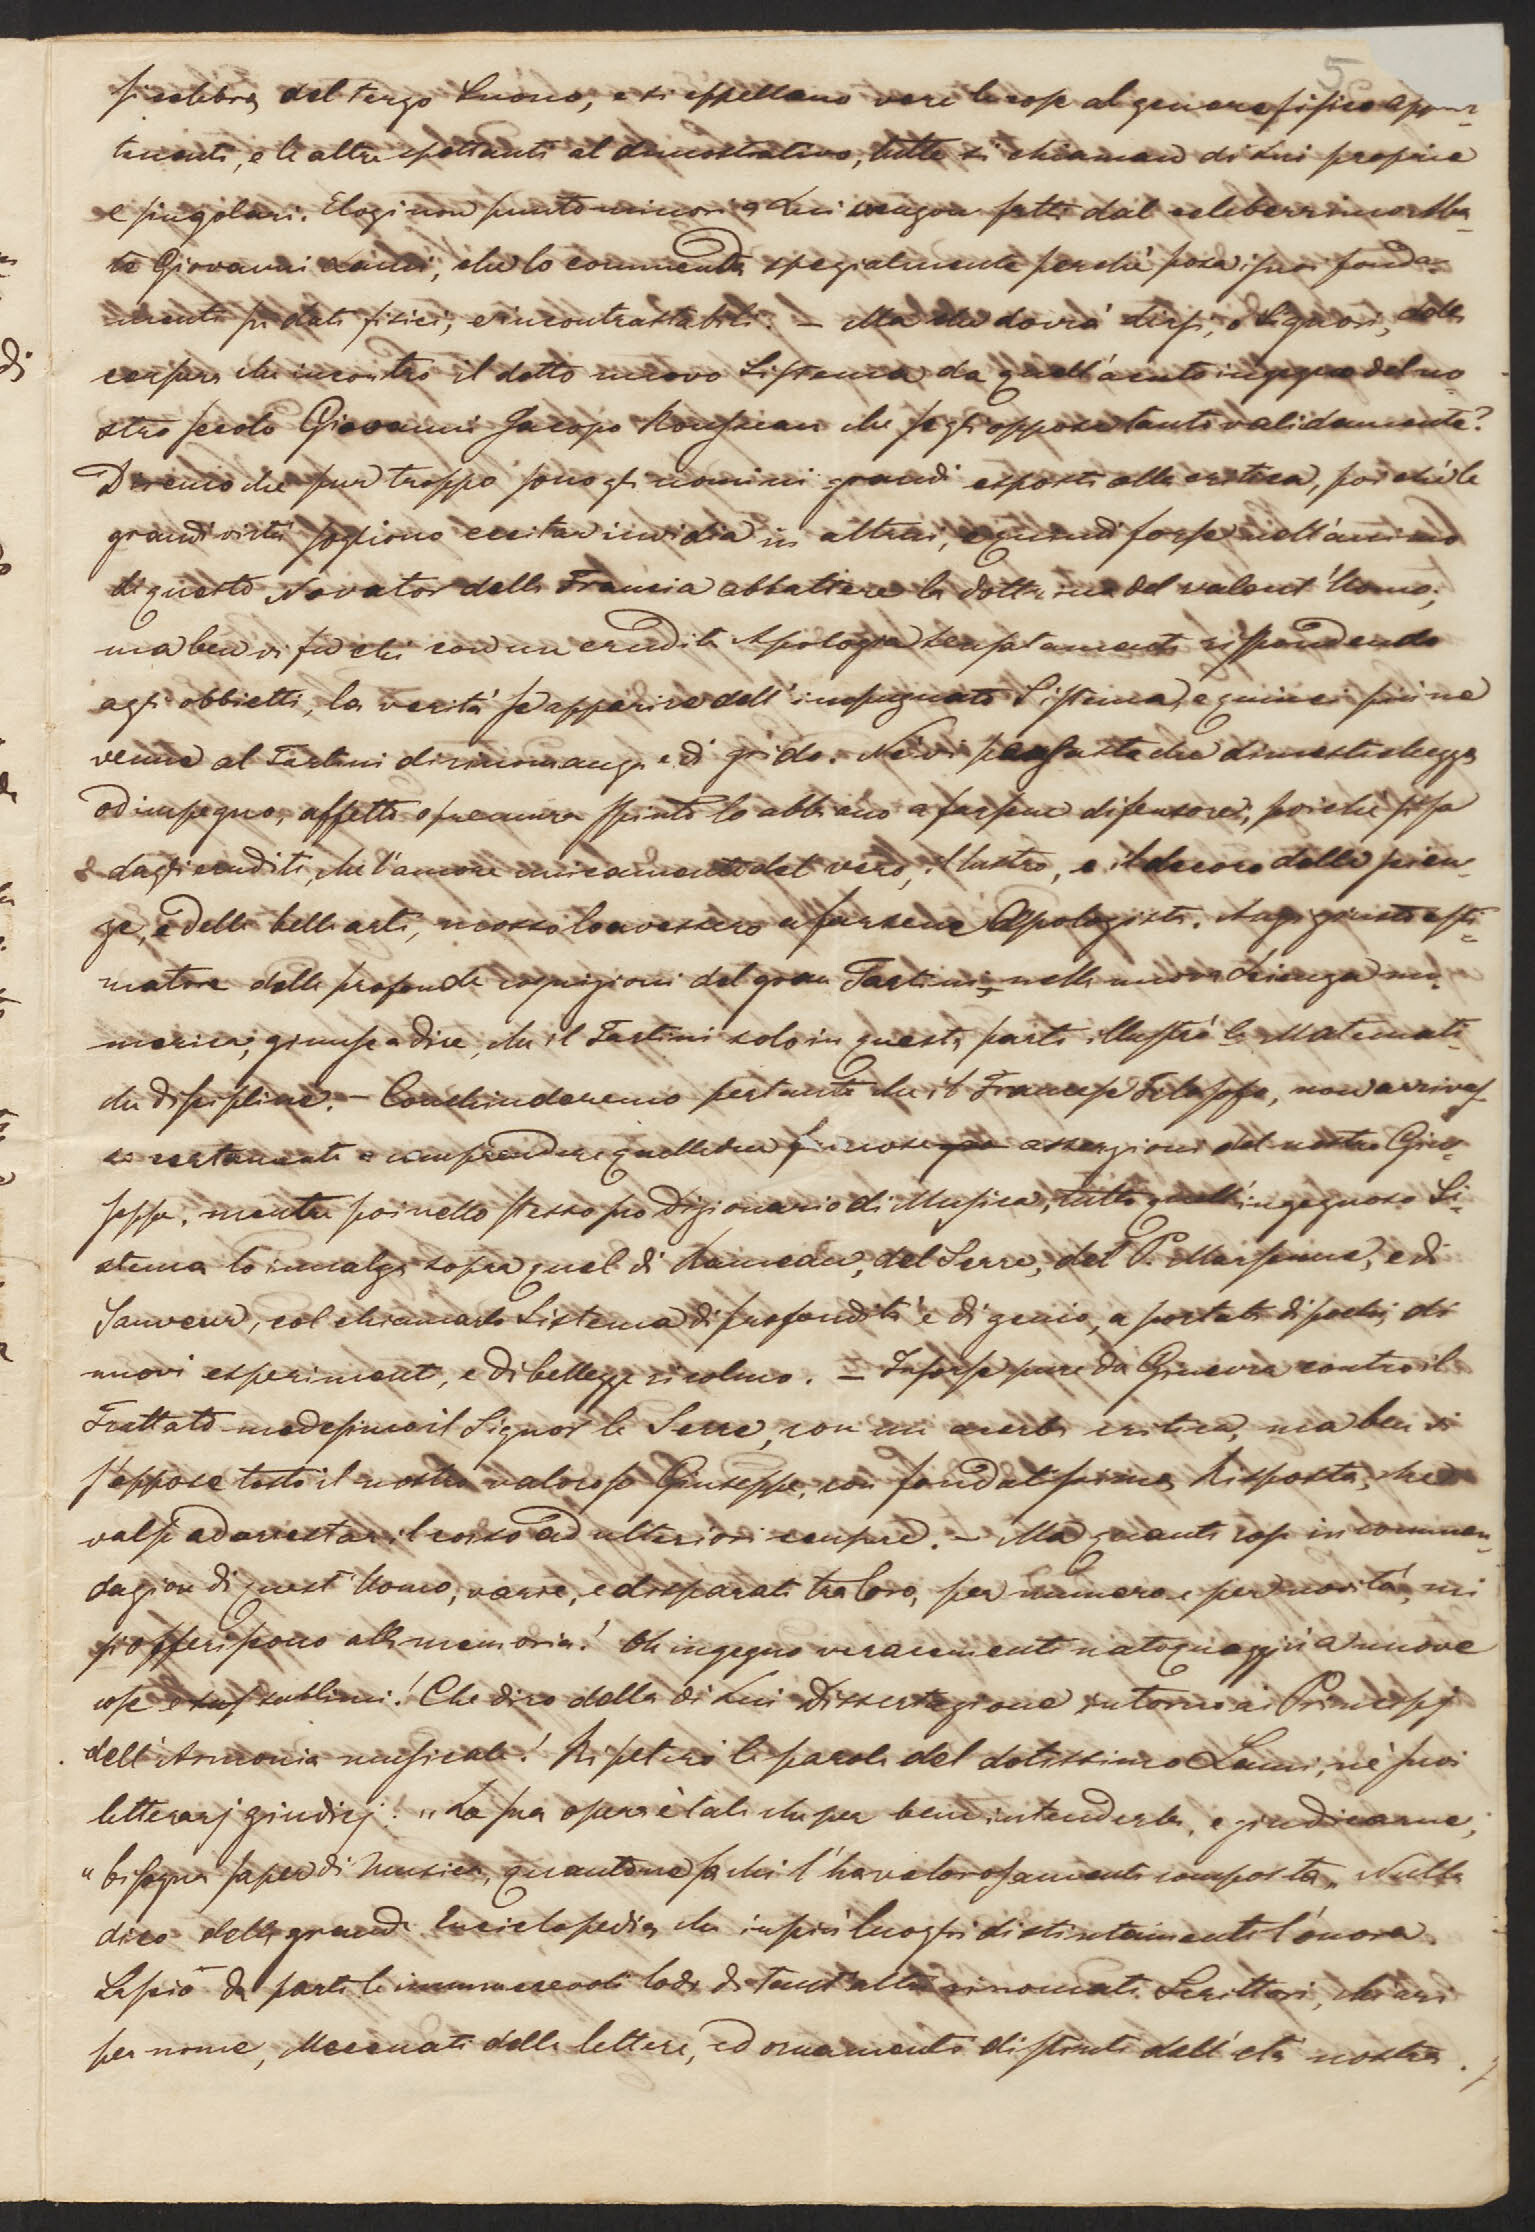 5
si celebra del terzo Suono, e si appellano vere le cose al genere fisico appar=
tenenti, e le altre spettanti al dimostrativo, tutte si chiaman di Lui proprie
e singolari. Elogi non punto minori a Lui vengon fatti dal celeberrimo Aba=
te Giovanni Lami, che lo commenda spezialmente perchè posa i suoi fonda=
menti su dati fisici, e incontrastabili. – Ma che dovrà dirsi, o Signori, della
censura che incontrò il dotto nuovo Sistema da quell'acuto ingegno del no=
stro secolo Giovanni Jacopo Rousseau che se gli oppose tanto validamente?
Diremo che pur troppo sono gli uomini grandi esposti alla critica, poichè le
grandi virtù sogliono eccitar invidia in altrui, e quindi forse nell'animo
di questo Novator della Francia abbattere la dottrina del valent'Uomo;
ma ben vi fu chi con una erudita Apologia sensatamente rispondendo
agli obbietti, la verità fe apparire dell'impugnato Sistema, e quinci più ne
venne al Tartini di rinomanza e di grido. Nè vi pensaste che dimestichezza
od impegno, affetto o premura spinto lo abbiano a farsene difensore, poichè si sa
dagli eruditi, che l'amore unicamente del vero, il lustro, e il decoro delle scien=
ze, e delle belle arti, mosso lo avessero a farsene Apologista. Anzi giusto esti=
matore delle profonde cognizioni del gran Tartini nella nuova Scienza nu=
merica, giunse a dire, che il Tartini solo in questa parte illustrò le Matemati=
che discipline. – Conchiuderemo pertanto che il Francese Filosofo, non arrivas=
se certamente a comprendere quelle due asserzioni del nostro Giu=
seppe, mentre poi nello stesso suo Dizionario di Musica, tutto quell'ingegnoso Si=
stema lo innalza sopra quel di Rameau, del Serre, del P. Mersenne, e di
Sauveur, col chiamarlo Sistema di profondità e di genio, a portata di poeti, di
nuovi esperimenti, e di bellezze ricolmo. – Insorse pure da Ginevra contro il
Trattato medesimo il Signor le Serre, con un acerba critica, ma ben si
s'oppose tosto il nostro valoroso Giuseppe, con fondatissima Risposta, che
valse ad arrestar il corso ad ulteriori censure. – Ma quante cose in commen=
dazion di quest'Uomo, varie, e disparate tra loro, per numero e per novità, mi
si offeriscono alla memoria! Oh ingegno veracemente nato quaggiù a nuove
cose e sublimi! Che dirò della di Lui Dissertazione intorno ai Principj
dell'Armonia musicale! Ripeterò le parole del dotissimo Lami, ne' suoi
letterarj giudicj: „ La sua opera è tale che per bene intenderla, e giudicarne,
„ bisogna saper di Musica, quanto ne sa chi l'ha valorosamente composta„ Nulla
dico della grande Enciclopedia che in più luoghi distintamente l'onora.
Lascio da parte le innumerevoli lodi di tant'altri rinomati Scrittori, chiari
per nome, Mecenati delle lettere, ed ornamenti distinti dell'età nostra.